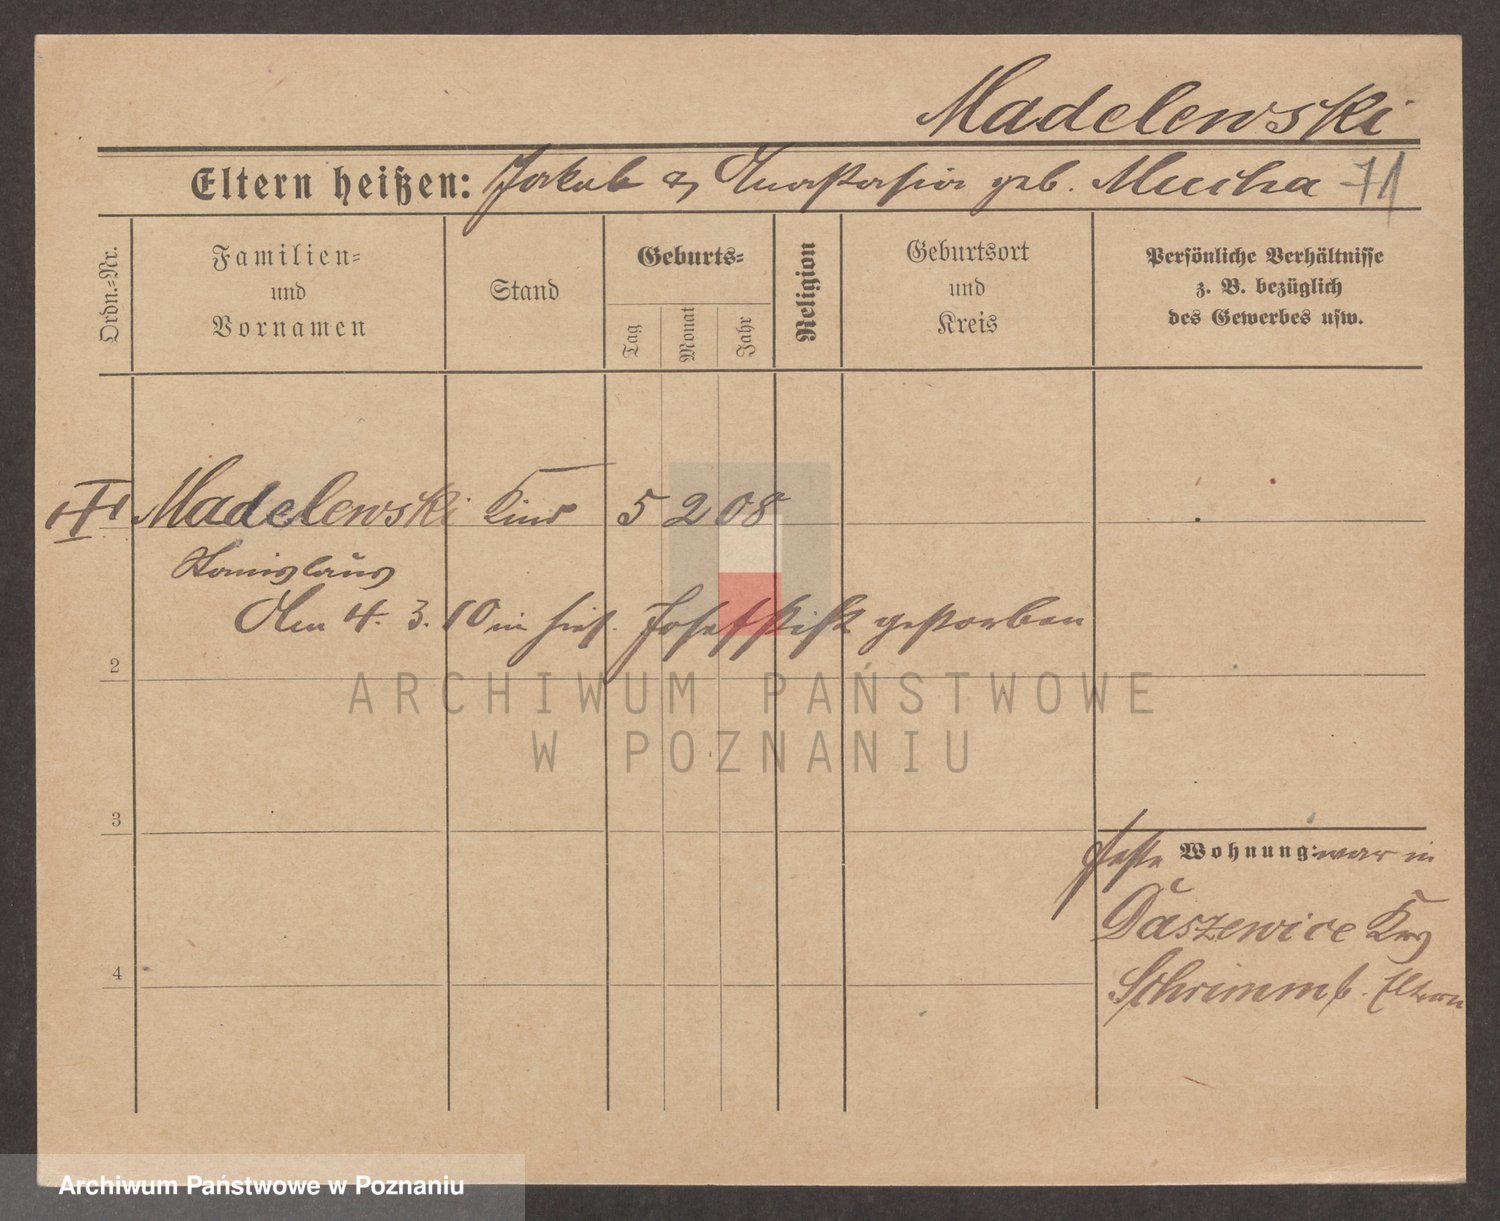 Madelewski
Eltern heißen: Jakob & Anastasia geb. Mucha 71
Ordn.-Nr.
Familien-
und
Vornamen
Stand
Geburts-
Tag
Monat
Jahr
Religion
Geburtsort
und
Kreis
Persönliche Verhältnisse
z. B. bezüglich
des Gewerbes usw.
Madelewski Kind 5 2 08
Stanislaus
Am 4. 3. 10 in hies. Josefstift gestorben
2
ARCHIWUM PAŃSTWOWE
W POZNANIU
3
feste Wohnung: war in
Daszewice Krs
Schrimm b. Eltern
4
Archiwum Państwowe w Poznaniu